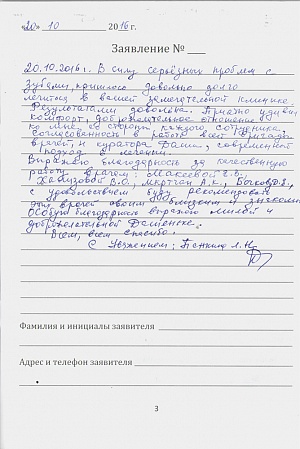 «20» 10 2016 г.
Заявление № ___
20.10.2016 г. В силу серьёзных проблем с
зубами, пришлось довольно долго
лечиться в вашей замечательной клинике.
Результатами довольна. Приятно удивил
комфорт, доброжелательное отношение
ко мне со стороны каждого сотрудника,
согласованность в работе всей бригады
врачей и куратора Даши, современный
подход к лечению.
Выражаю благодарность за качественную
работу врачам: Макеевой Е.В.,
В.О., Мкртчан А.К.,
с удовольствием буду рекомендовать
этих врачей своим близким и знакомым.
Особую благодарность выражаю милой и
доброжелательной Дашеньке.
Всем, всем спасибо!
С Уважением: Л.Н.
Фамилия и инициалы заявителя
Адрес и телефон заявителя
3